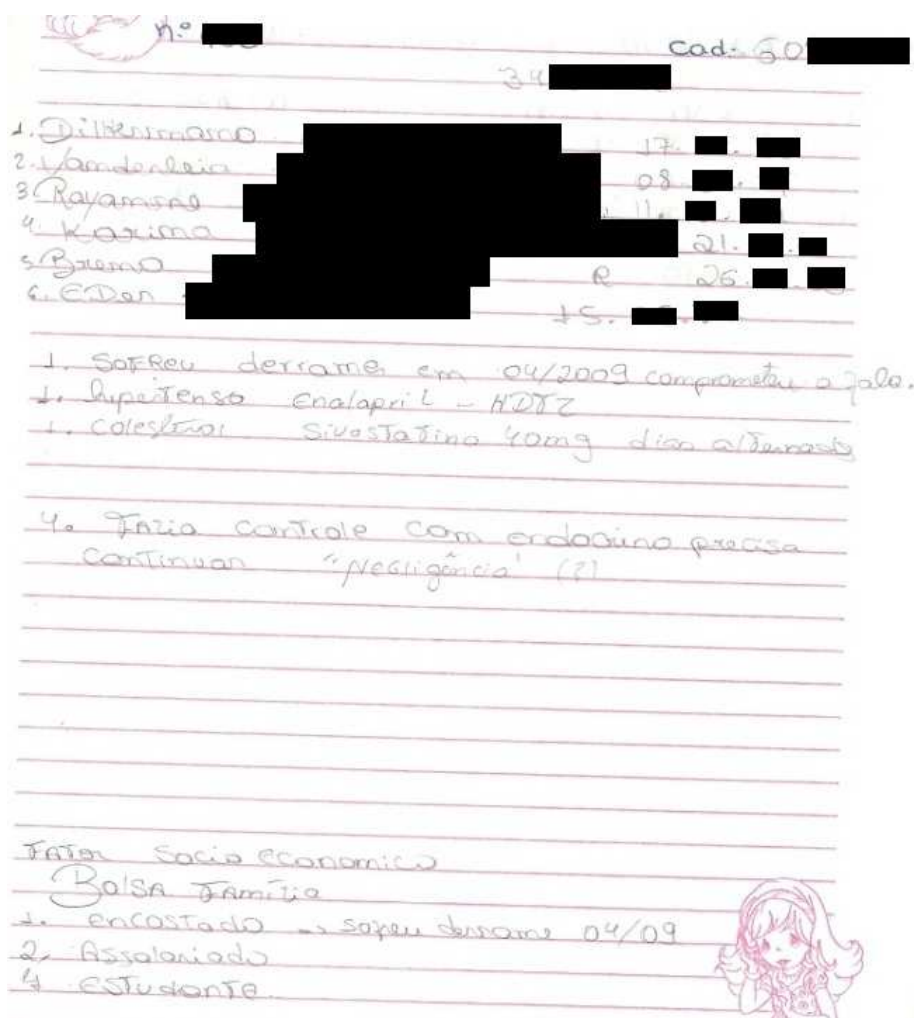 n.º
Cad: 50
34
1. Dilhermano 17.
2. Vamderleia 08
3 Rayamne 11.
4. Karima 21.
5 Bremo R 26
6. EDer 15.
1. SoFReu derrame em 04/2009 comprometeu a fala.
1. hipertenso Enalapril - HDTZ
1. colesterol Sivastatina 40mg dias alternado
4. FAzia controle com endocrino precisa
continuar "Negligência" (?)
FAtor Socio economico
BolsA FAmília
1. encostado → sofreu derrame 04/09
2. Assalariado
4 ESTudante